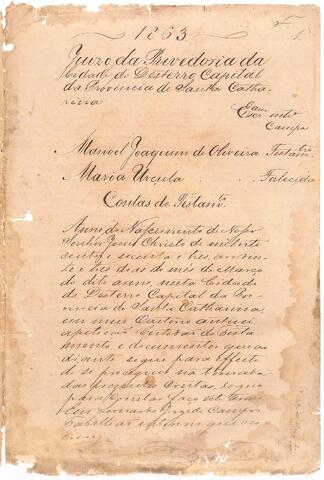 1863
F
1
Juizo da Provedoria da
Cidade do Desterro, Capital
da Provincia de Santa Catha-
rina
Esam
Escr. intº
Campos
Manoel Joaquim de Oliveira Testamtro
Maria Ursula Falecida
Contas de Testamto
Anno do Nascimento de Nosso
Senhor Jesus Christo de mil oito
centos e secenta e tres, aos vin-
te e tres dias do mes de Março
do dito anno, nesta Cidade
do Desterro Capital da Pro-
vincia de Santa Catharina,
em meu Cartorio autuei
a petição Certidão do testa-
mento e documentos que ao
diante segue para effeito
de se proseguir na tomada
das prezentes Contas, do que
para constar faço este termo
Eu Leonardo Jorge de Campos